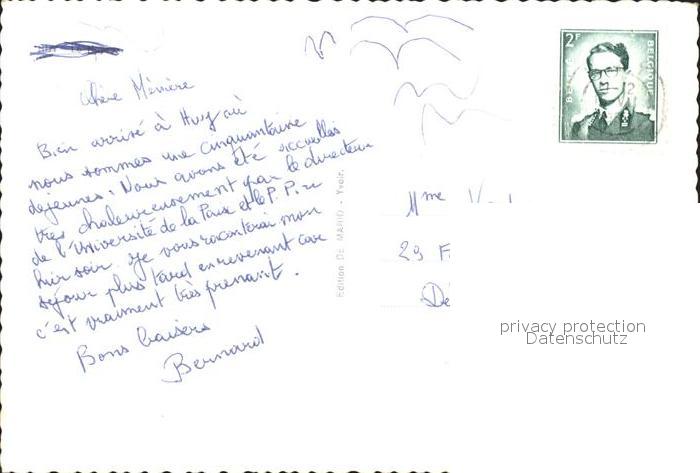 Chère Mémère
Bien arrivé à Huy où
nous sommes une cinquantaine
de jeunes. Nous avons été accueillis
très chaleureusement par le directeur
de l'Université de la Paix et le P. Pire
hier soir. Je vous raconterai mon
séjour plus tard en revenant car
c'est vraiment très prenant.
Bons baisers
Bernard
Edition DE MARIO - Yvoir.
2F
BELGIË
BELGIQUE
Mme
29 F
Dé
privacy protection
Datenschutz